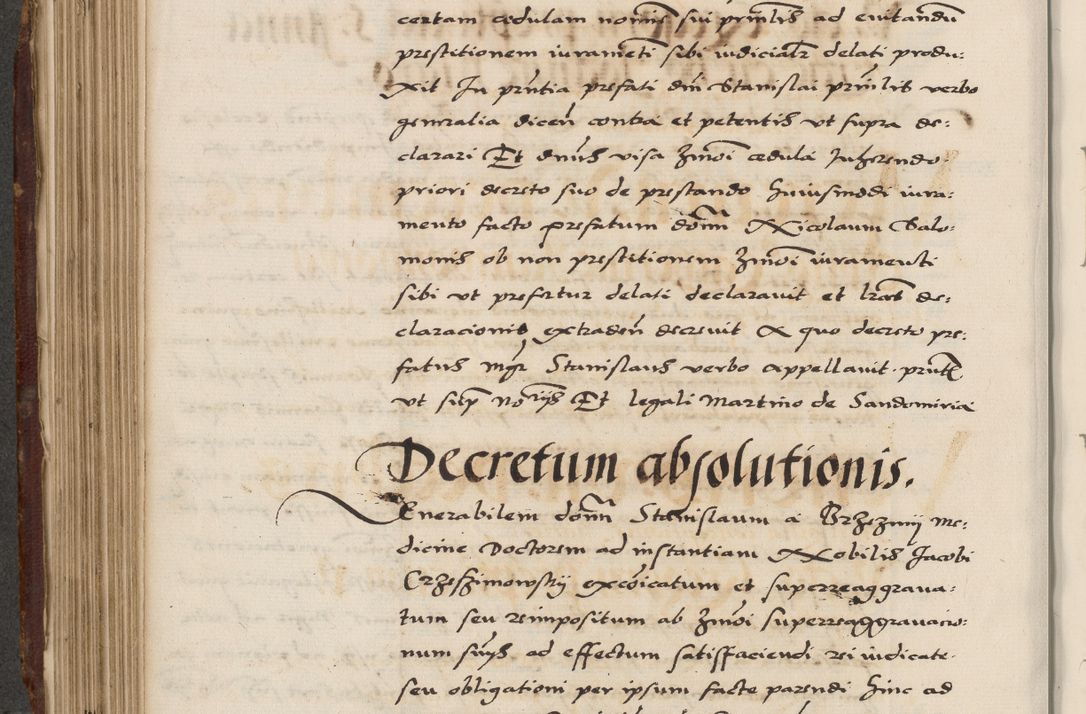 certam cedulam nomīs sui prīnlis ad euitandū
prestitionem iuramēti sibi iudicialr̄ delati produ:
xit In prn̄tia prefati dn̄i Stanislai prīnlis verbo
generalia diceñ contra et petentis vt supra de:
clarari Et dnūs visa ʒmōi cedula Inherendo
priori decreto suo de prestando huiusmodi iura:
mento facto prefatum dōm̄ Nicolaum Salo:
monis ob non prestitionem ʒmōi iuramenti
sibi vt prefertur delati declarauit et lr̄as de:
claracionis extradeñ decreuit A quo decreto pre:
fatus mgr̄ Stanislaus verbo appellauit
vt Et legali Martino de Sandomiria
Decretum absolutionis.
Venerabilem dōm̄ Stanislaum a Brzeziny me:
dicine Doctorem ad instantiam Nobilis Jacobi
Crzeszimowskij excōicatum et superreaggraua:
tum seu reimpositum ab ʒmōi superreaggrauacio:
num sn̄ijs ad effectum satisfaciendi rei iudicate
seu obligationi per ipsum facte parendi hinc ad